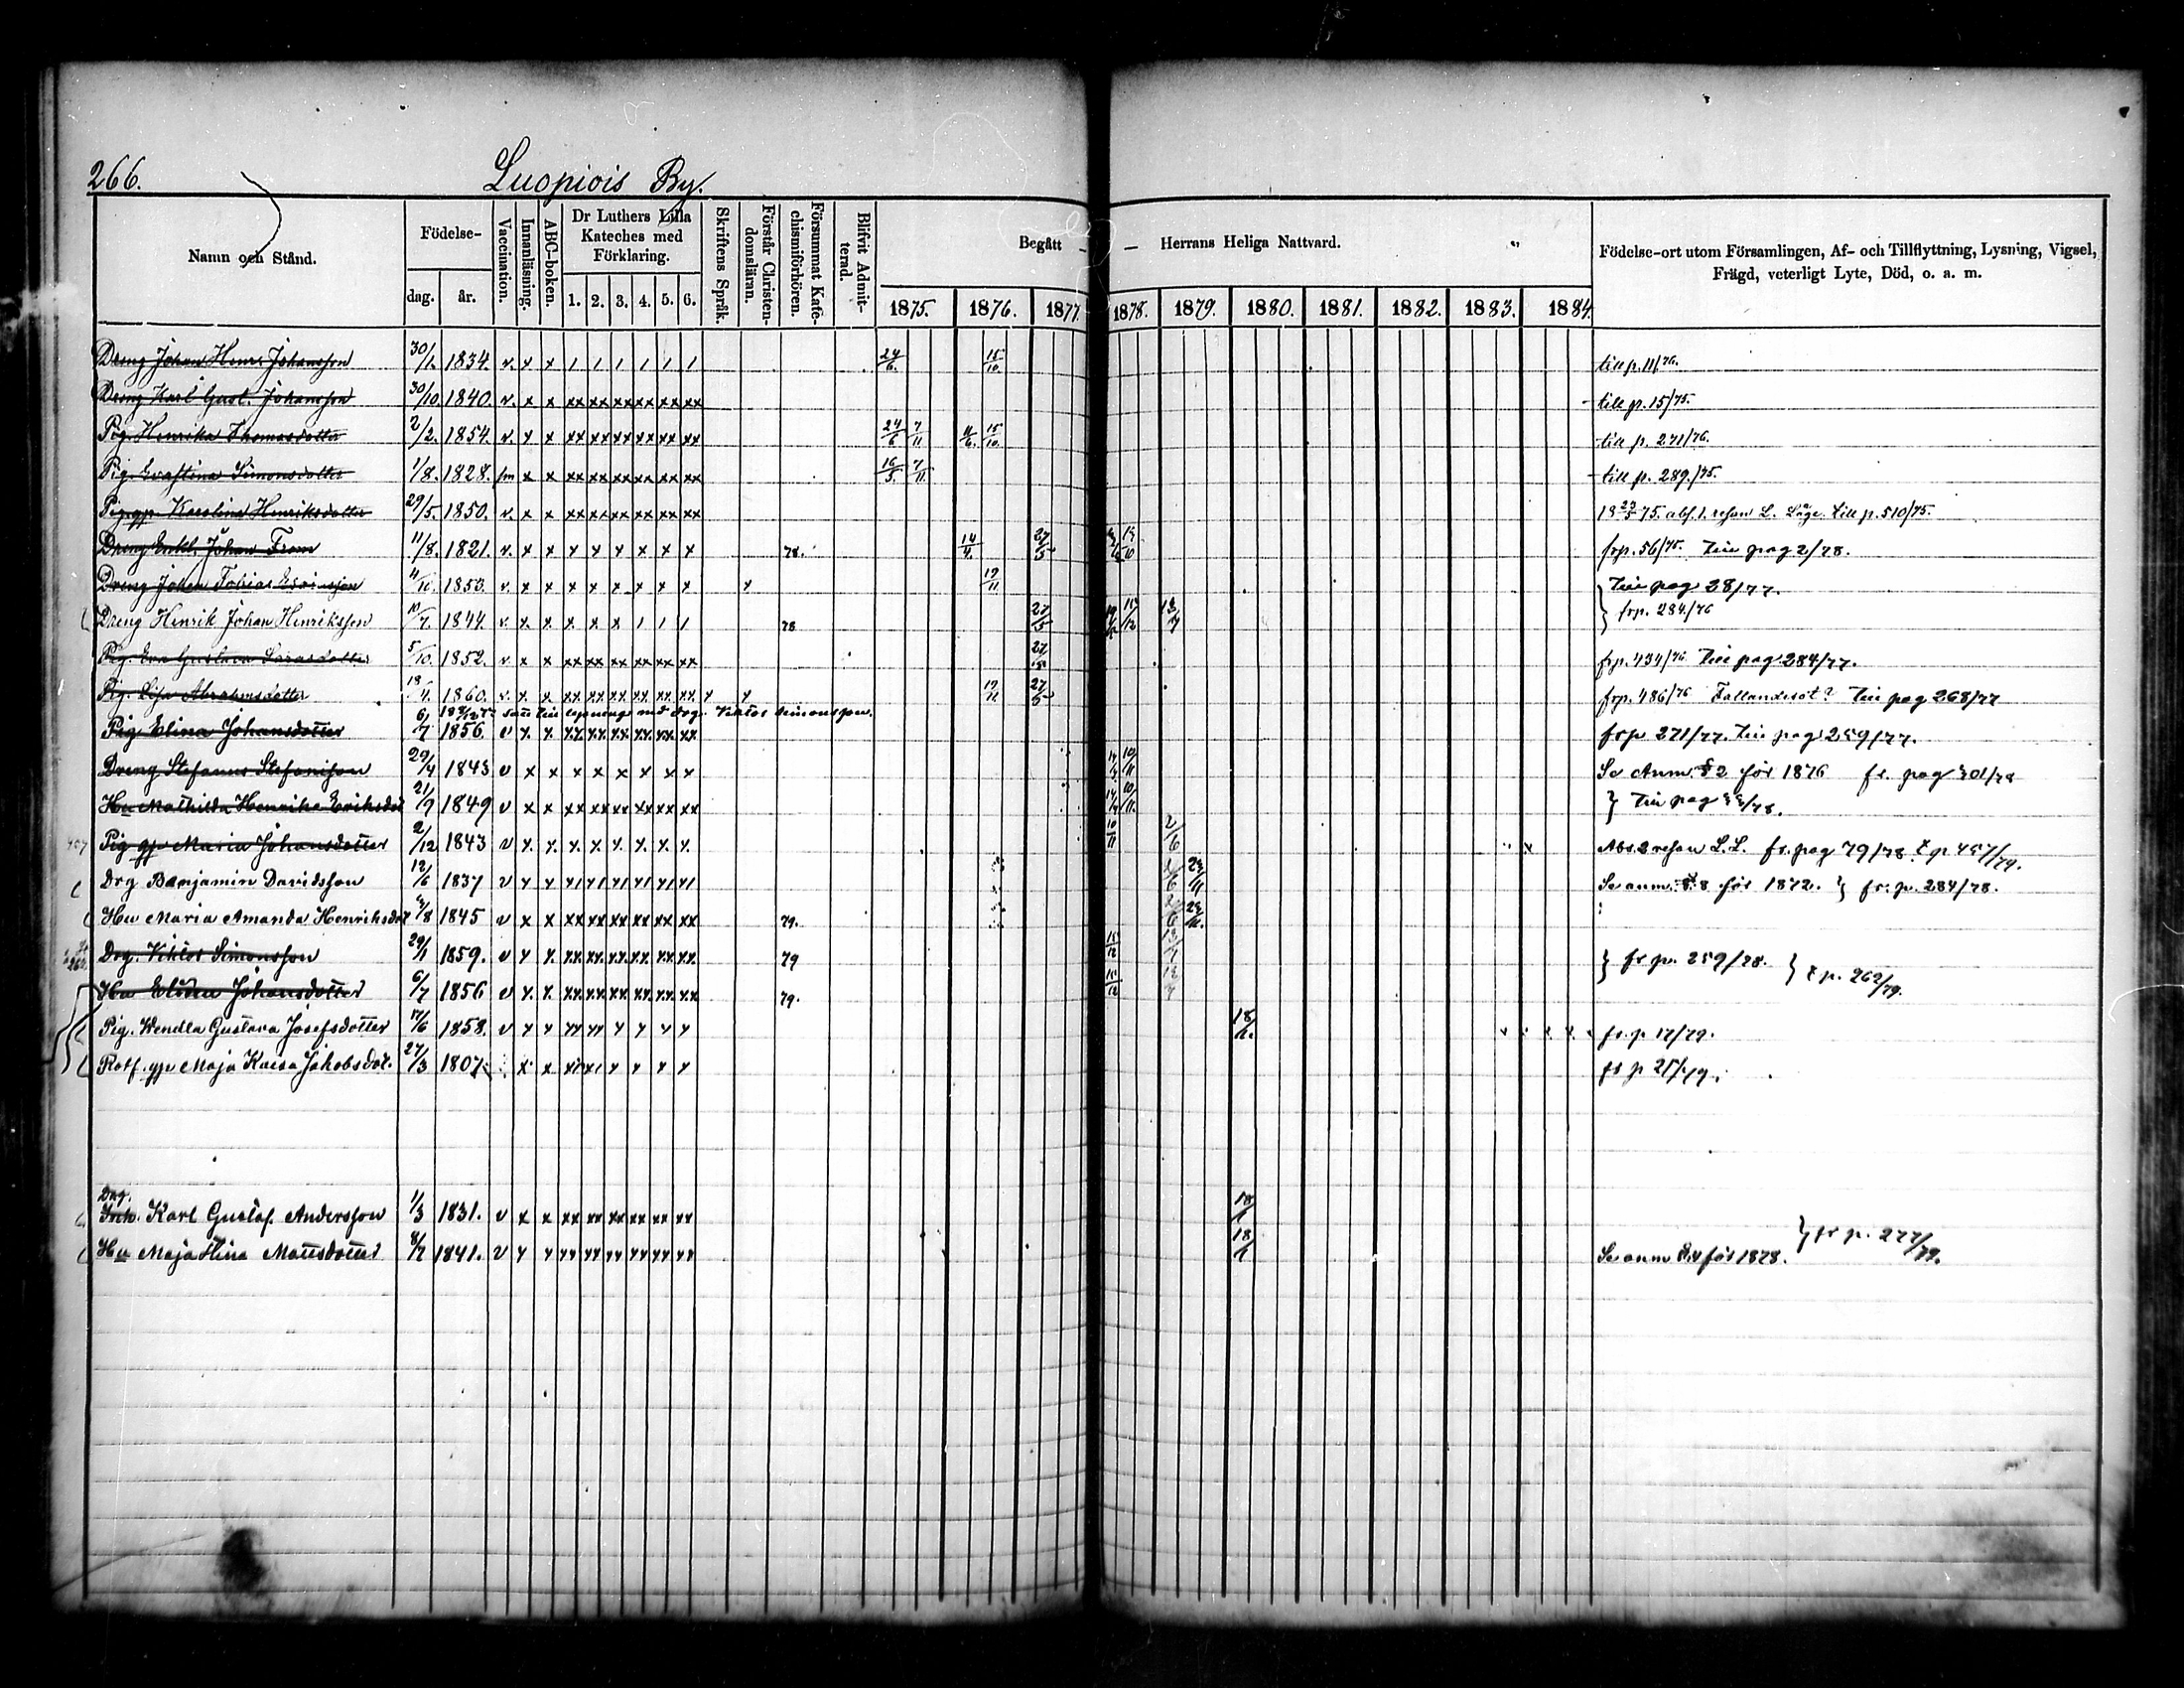 266.
Luopiois By.
Namn och Stånd.
Födelse-
dag. år.
Vaccination.
Innanläsning.
ABC-boken.
Dr Luthers Lilla Kateches med Förklaring.
1. 2. 3. 4. 5. 6.
Skriftens Språk.
Förstår Christendomsläran.
Försummat Katechismiförhören.
Blifvit Admitterad.
Begått — — Herrans Heliga Nattvard.
1875. 1876. 1877. 1878. 1879. 1880. 1881. 1882. 1883. 1884.
Födelse-ort utom Församlingen, Af- och Tillflyttning, Lysning, Vigsel,
Frägd, veterligt Lyte, Död, o. a. m.
Dreng Johan Henr. Johansson 30/1. 1834. v. x x / / / / / / 24/6. 15/10. till p. 11/76.
Dreng Karl Gust. Johansson 30/10. 1840. v. x x xx xx xx xx xx xx till p. 15/75.
Pig. Henrika Thomasdotter 2/2. 1854. v. x x xx xx xx xx xx xx 24/6 7/11 11/6. 15/10. till p. 271/76.
Pig. Evastina Simonsdotter 1/8. 1828. x x xx xx xx xx xx xx 16/5. 7/11. till p. 289./75.
Pig. gp. Karolina Henriksdotter 29/5. 1850. v. x x xx xx xx xx xx xx 75. abs. 1. resan L. Läge. till p. 510/75.
Dreng Enkl. Johan From 11/8. 1821. v. x x x x x x x x 78. 14/4. 27/5 frp. 56/75. Till pag 2/78.
Dreng Johan Tobias 1853. v. x x x x x x x x x 19/11 Till pag 28/77.
Dreng Henrik Johan Henriksson 10/7. 1844. v. x x x x x / / / 78 27/5 15/12 13/7 frp. 284/76
Pig. Eva Gustava 5/10. 1852. v x x xx xx xx xx xx xx 27/5 frp. 434/76 Till pag 284/77.
Pig. Lisa Abrahamsdotter 18/4. 1860. v. x x xx xx xx xx xx xx x x 19/11 27/5 frp. 486/76 Fallandesot? Till pag 268/77
till lysning med drg. Viktor Simonsson.
Pig Elina Johansdotter 6/7 1856 v x x xx xx xx xx xx xx frp 271/77. Till pag 259/77.
Dreng Stefanus Stefansson 29/4 1843 v x x x x x x x x 10/11 Se Anm. § 2 för 1876 fr. pag
Hu Mathilda Henrika Eriksdot 21/9 1849 v x x xx xx xx xx xx xx 10/11. Till pag
407 Pig gp Maria Johansdotter 2/12 1843 v x x x x x x x x 10/11 2/6 Abs. 2 resan L.L. fr. pag 79/78. t p 457/79.
Drg Benjamin Davidsson 12/6 1837 v x x x/ x/ x/ x/ x/ x/ 23/11 Se anm. § 8 för 1872. } fr. p. 284/78.
Hu Maria Amanda Henriksdot 1845 v x x xx xx xx xx xx xx 79. 23/11.
Drg. Viktor Simonsson 29/1 1859. v x x xx xx xx xx xx xx 79 15/12 13/7 } fr p. 259/78. } t p. 262/79.
Hu Johansdotter 6/7 1856 v x x xx xx xx xx xx xx 79. 15/12
Pig. Wendla Gustava Josefsdotter 17/6 1858. v x x xx xx x x x x 18/1. fr. p 17/79.
Rotf. gp Maja Kaisa Jakobsdot. 27/3 1807. x x x x x x fr p
Drg.
Inh. Karl Gustaf Andersson 1/3 1831. v x x xx xx xx xx xx xx 18/1
Hu Maja Stina Mattsdotter 8/7 1841. v x x xx xx xx xx xx xx 18/1 Se anm § 4 för 1878. } fr p. 277/79.